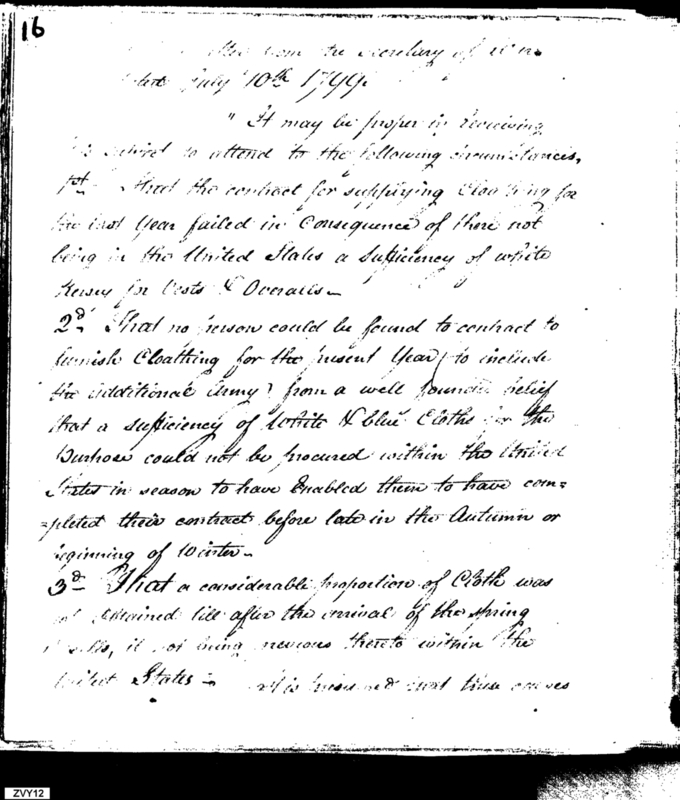 16
from the Secretary of War
July 10th 1799.
" It may be proper in receiving
to attend to the following circumstances,
1st That the contract for supplying Cloathing for
the last Year failed in Consequence of there not
being in the United States a sufficiency of white
Kersey for Vests & Overalls—
2d That no person could be found to contract to
furnish Cloathing for the present Year (to include
the additional Army) from a well founded belief
that a sufficiency of White & blue Cloths for the
Purpose could not be procured within the United
States in season to have Enabled them to have com=
=pleted their contract before late in the Autumn or
beginning of Winter—
3d That a considerable proportion of Cloth was
not obtained till after the arrival of the spring
it not being previous thereto within the
United States — It is presumed that these causes
ZVY12